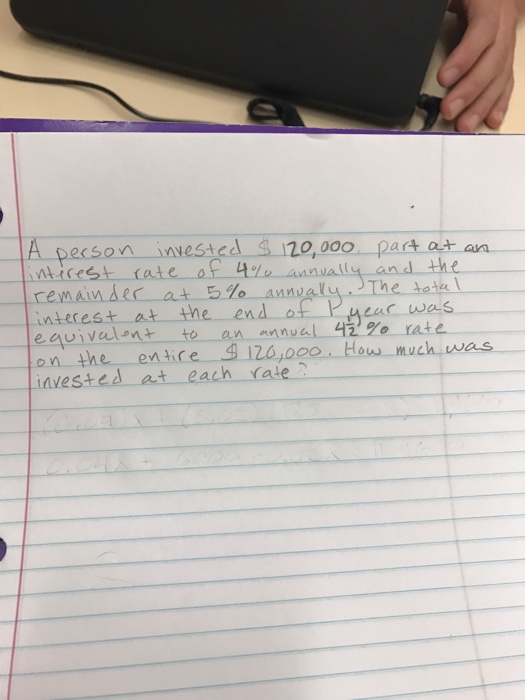 A person invested $ 120,000 part at an
interest rate of 4% annually and the
remainder at 5% annually. The total
interest at the end of 1 year was
equivalent to an annual 4½ % rate
on the entire $ 120,000. How much was
invested at each rate?